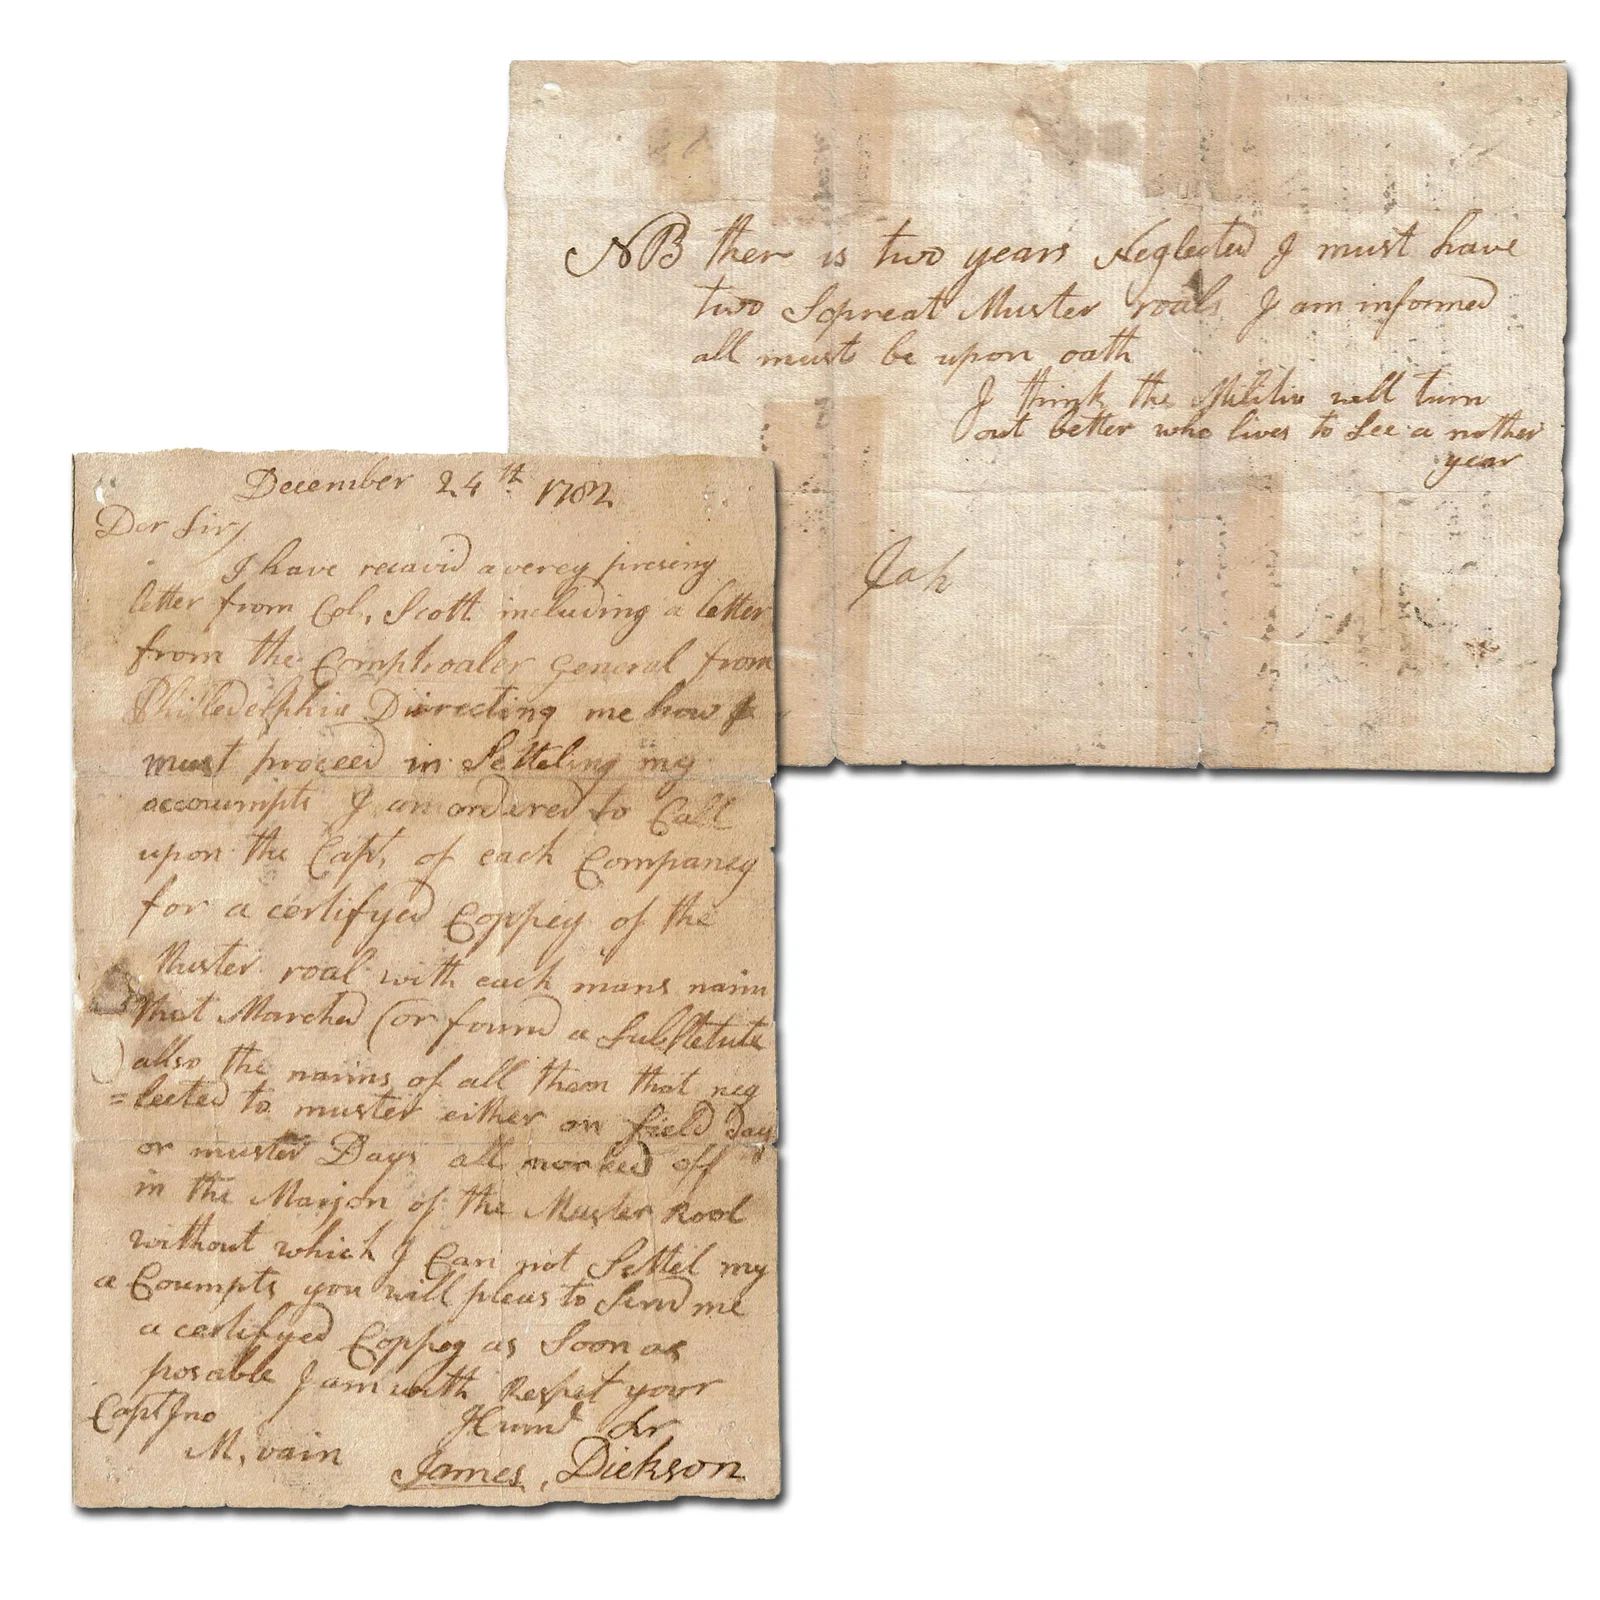 December 24th 1782
Der Sir/
I have recavid a verey presing
letter from Col, Scott including a letter
from the Comptroaler General from
Philledelphia Dirrecting me how I
must proceed in Setteling my
accoumpts I am ordered to Call
upon the Capt, of each Companey
for a certifyed Coppey of the
Muster roal with each mans naim
that Marched (or found a Substetute
) allso the naims of all them that neg
=lected to muster either on field Day
or muster Days all marked off
in the Marjon of the Muster Rool
without which I Can not Settel my
a Coumpts you will pleas to Send me
a certifyed Coppey as Soon as
posable I am with Respet your
Capt Jno
Humd Sr
M, vain
James, Dickson
NB ther is two years Neglected I must have
two Sepreat Muster roals I am informed
all must be upon oath
I think the Militia will turn
out better who lives to See a nother
year
Jah